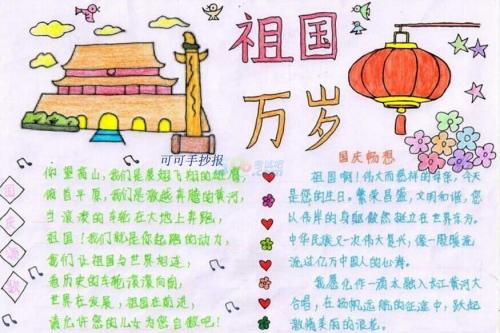 祖国
万岁
可可手抄报
国
你望高山,我们是展翅飞翔的雄鹰,
俯首平原,我们是激越奔腾的黄河,
当滚滚的车轮在大地上奔跑,
祖国!我们就是你起跑的动力,
我们让祖国与世界相连,
看历史的车轮滚滚向前,
世界在发展,祖国在前进,
请允许您的儿女为您自傲吧!
国庆畅想
祖国啊!伟大而慈祥的母亲,今天
是您的生日。繁荣昌盛,文明和谐,您
以伟岸的身躯傲然挺立在世界东方。
中华民族又一次伟大复兴,像一股暖流
流过亿万中国人的心海。
我愿化作一滴水融入长江黄河大
合唱,在扬帆远航的征途中,跃起
美丽的浪花。